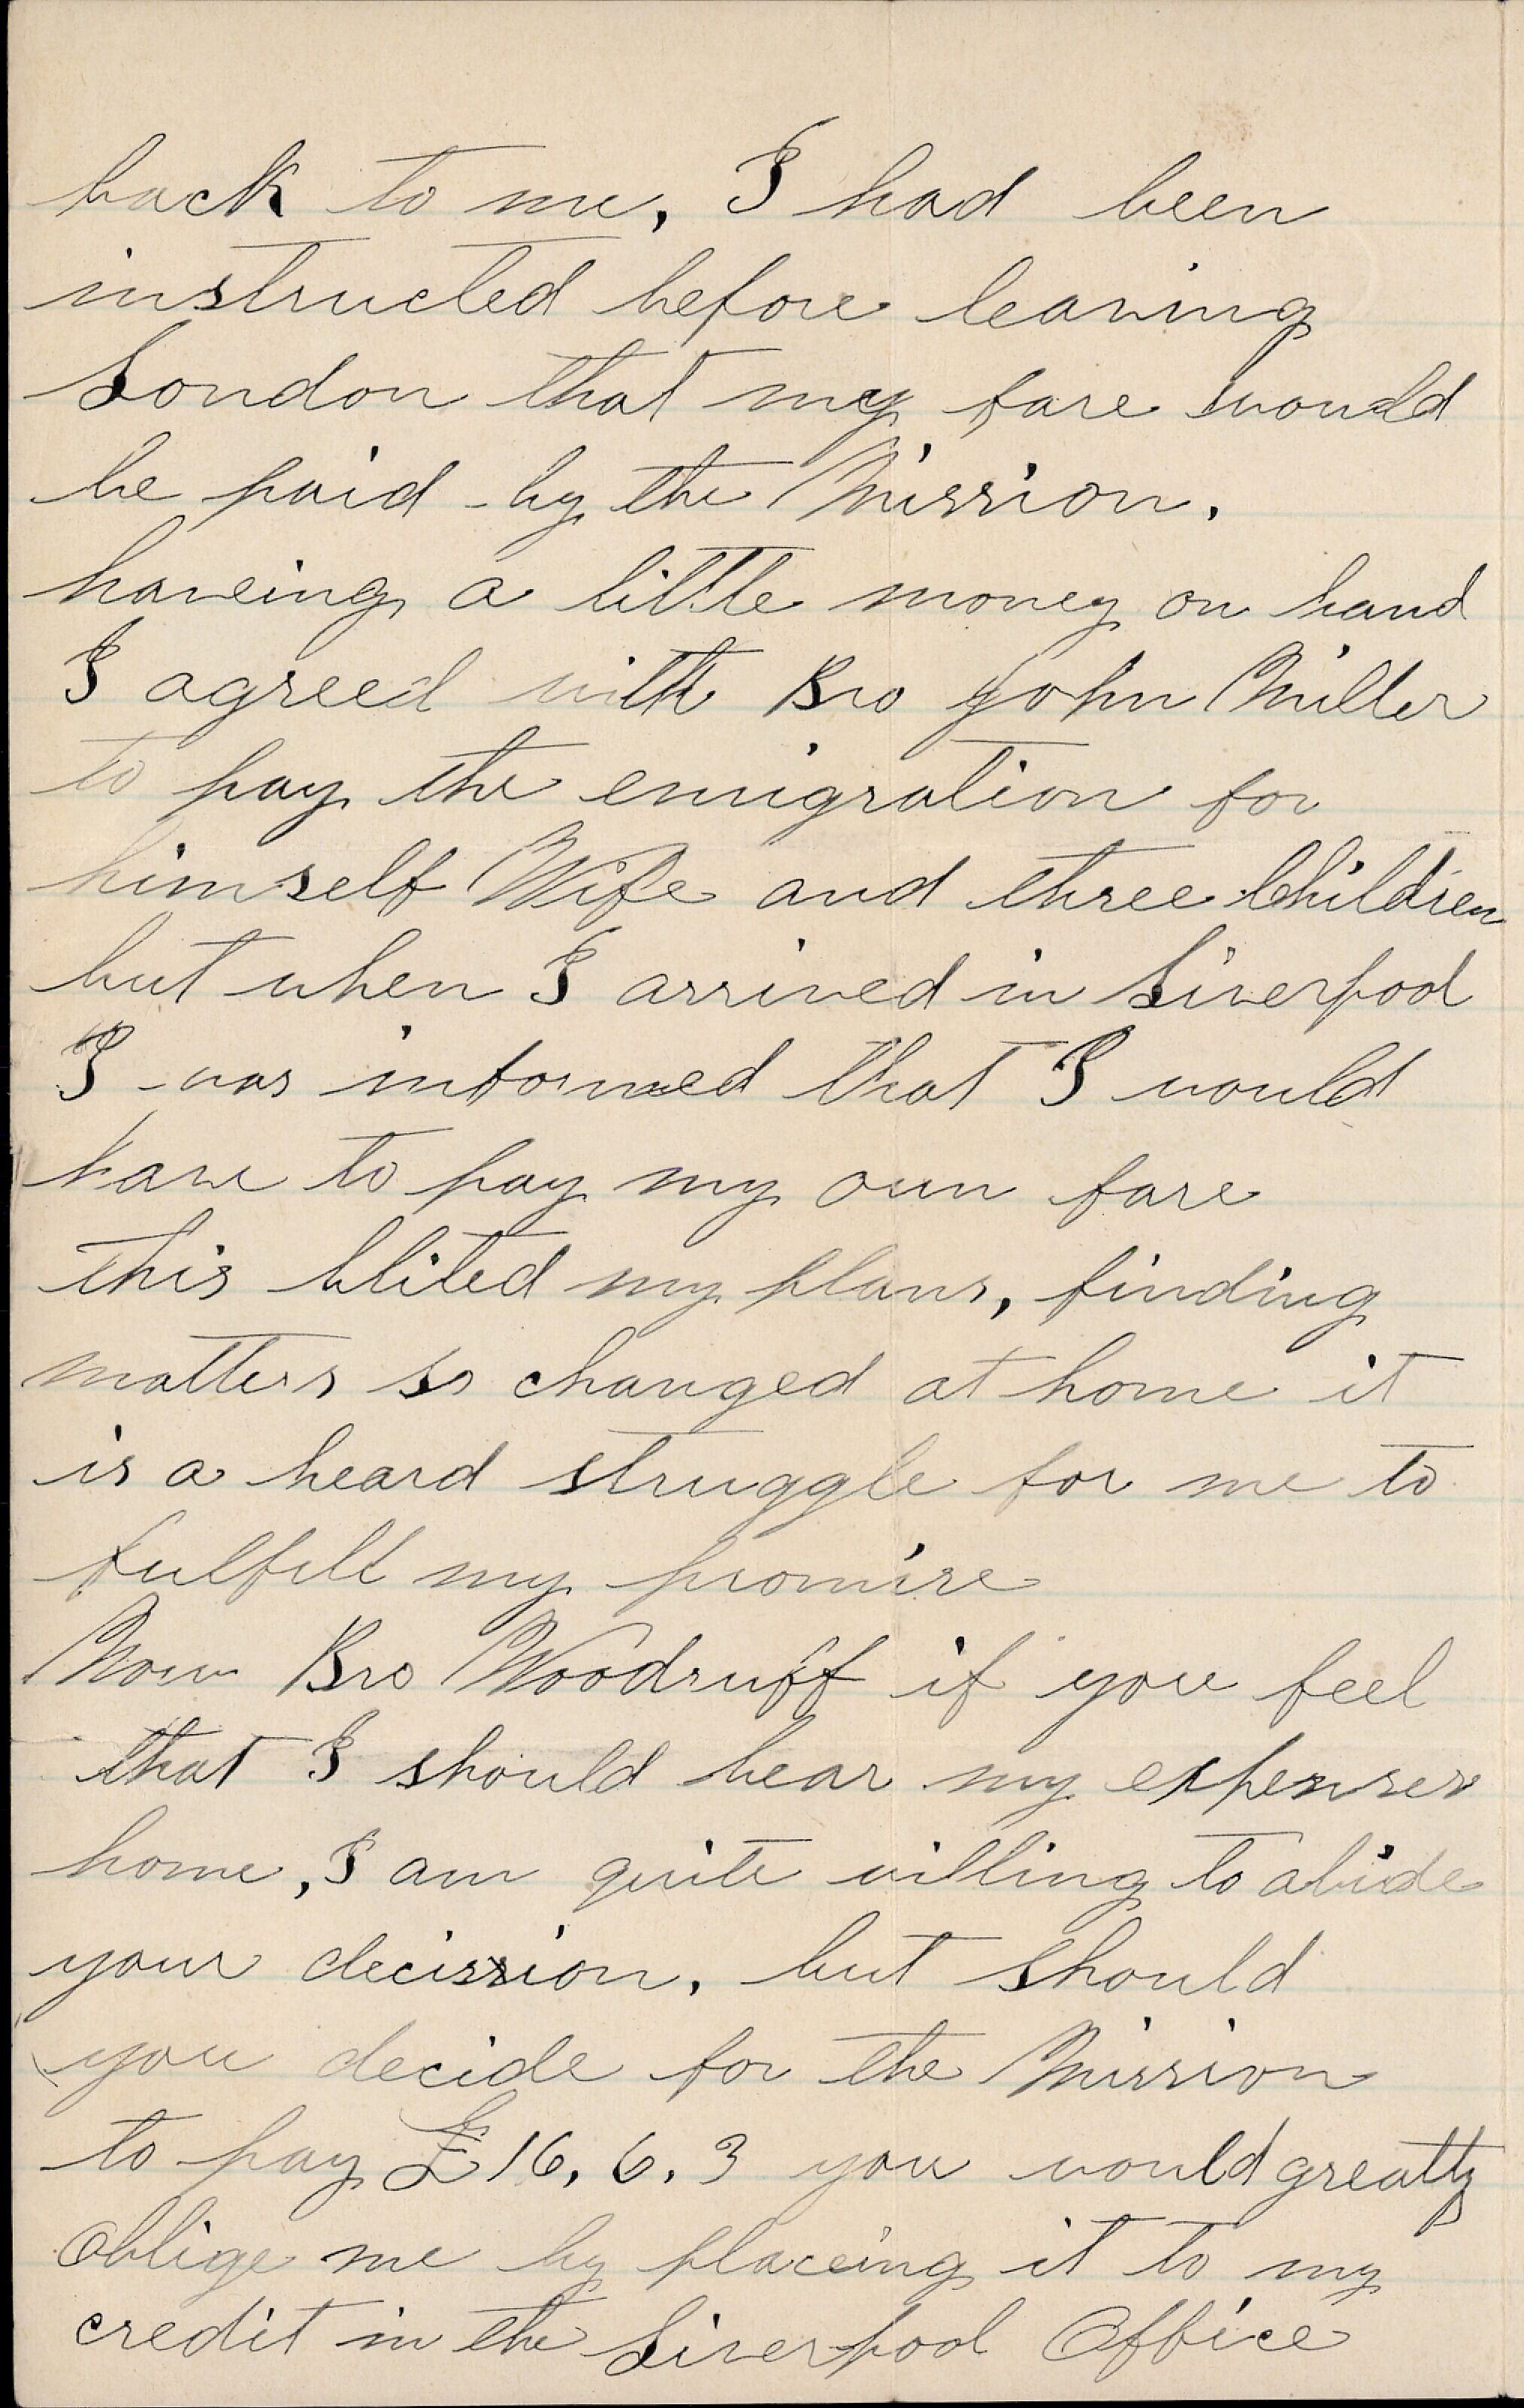 back to me, I had been
instructed before leaving
London that my fare would
be paid by the Mission.
haveing a little money on hand
I agreed with Bro John Miller
to pay the emigration for
himself Wife and three Children
but when I arrived in Liverpool
I was informed that I would
have to pay my own fare
this blited my plans, finding
matters so changed at home it
is a heard struggle for me to
fulfill my promise
Now Bro Woodruff if you feel
that I should bear my expenses
home, I am quite willing to abide
your decission, but should
you decide for the Mission
to pay £16, 6, 3 you would greatly
oblige me by placeing it to my
credit in the Liverpool Office